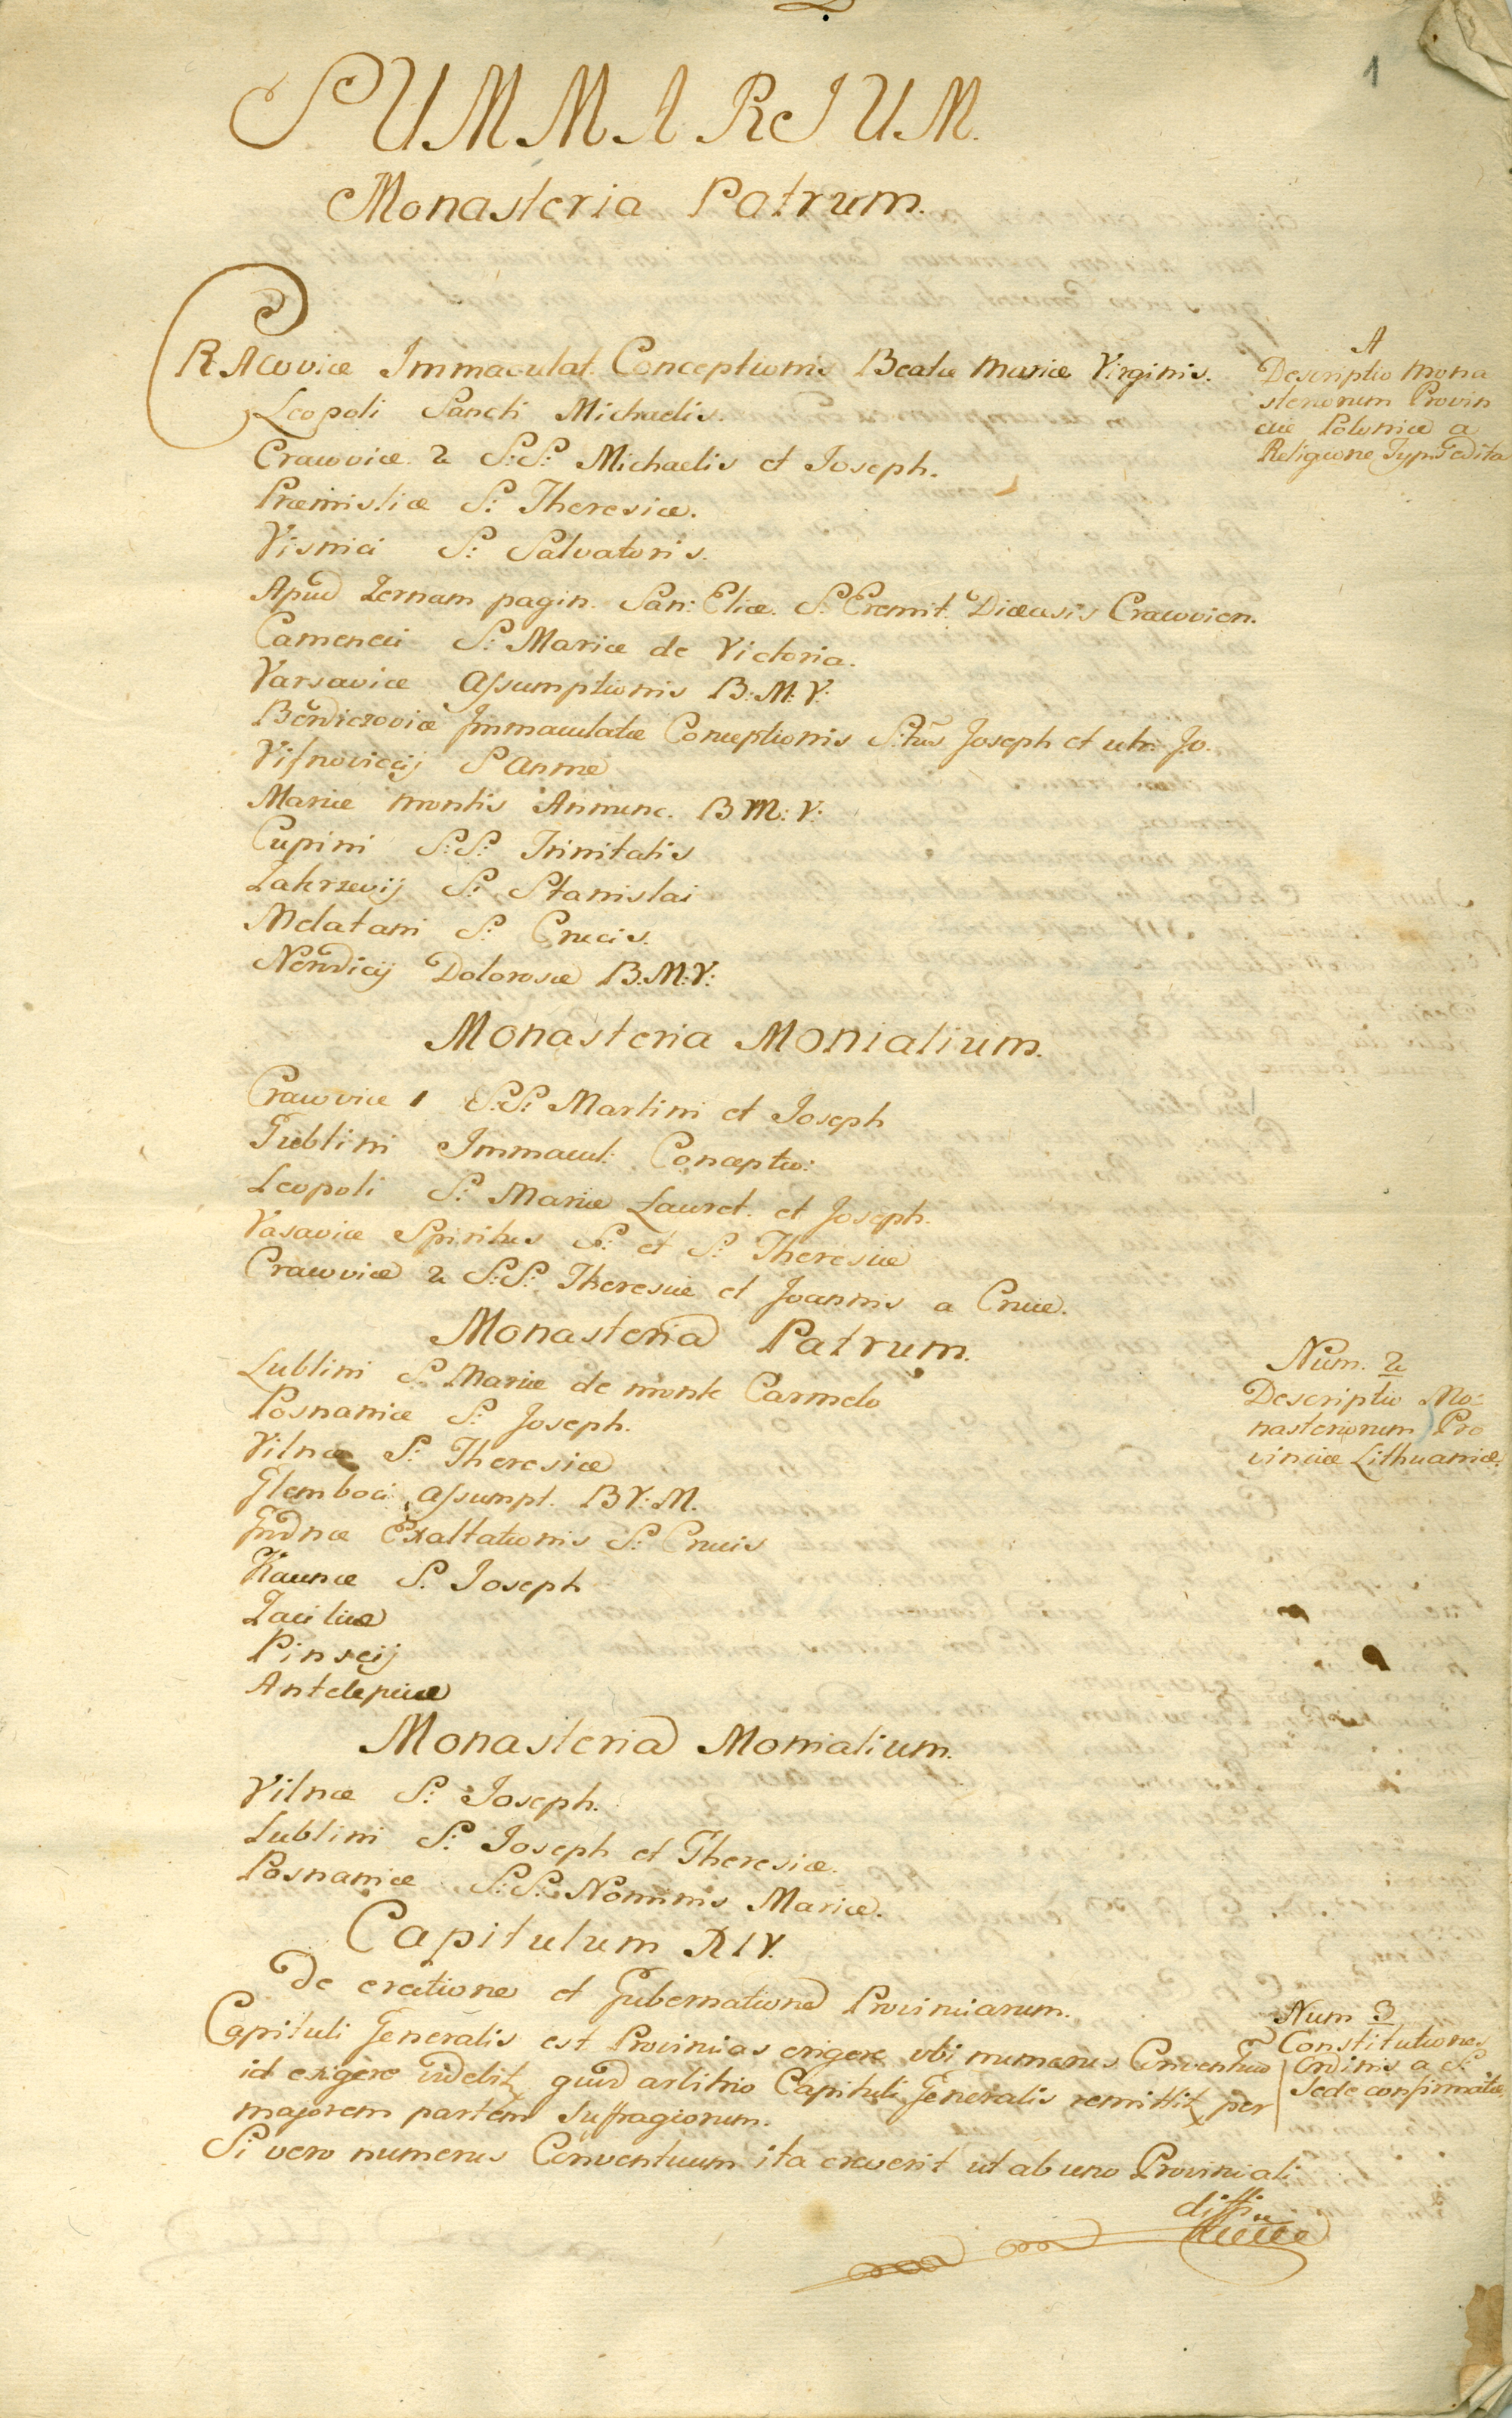 1
SUMMARIUM.
Monasteria Patrum.
CRAcoviæ Immaculat. Conceptionis Beatæ Mariæ Virginis.
Leopoli Sancti Michaelis.
Cracoviæ 2 S:S: Michaelis et Joseph.
Præmisliæ S: Theresiæ.
Visnici S: Salvatoris.
Apud Zernam pagin. San: Eliæ. S. Eremit. Diæcesis Cracovien.
Cameneci S: Mariæ de Victoria.
Varsaviæ Assumptionis B: M: V:
Berdiczoviæ Immaculatæ Conceptionis Joseph et Jo.
Visnoviecij S Annæ
Mariæ montis Annunc. B M: V:
Cupini S:S: Trinitatis
Zakrzevij S: Stanislai
Melatani S: Crucis.
Nerwicij Dolorosæ B.M:V:
Monasteria Monialium.
Cracoviæ 1 S:S: Martini et Joseph
Gublini Immacul: Conceptio:
Leopoli S: Mariæ Lauret. et Joseph.
Vasaviæ Spiritus S: et S: Theresiæ
Cracoviæ 2 S:S: Theresiæ et Joannis a Cruce.
Monasteria Patrum.
Lublini S: Mariæ de monte Carmelo
Posnaniæ S: Joseph.
Vilnæ S: Theresiæ
Glemboci Assumpt. BV:M.
Grdnæ Exaltationis S: Crucis
Kaunæ S. Joseph
Zaciliæ
Pinscij
Antelepiæ
Monasteria Monialium.
Vilnæ S: Joseph.
Lublini S: Joseph et Theresiæ.
Posnaniæ S:S: Nominis Mariæ.
Capitulum XIV.
De erectione et Gubernatione Provinciarum.
Capituli Generalis est Provincias erigere ubi numerus Conventuũ
id exigere videbit, quod arbitrio Capituli Generalis remittit, per
majorem partem Suffragiorum.
Si vero numerus Conventuum ita creverit ut ab uno Provinciali
diffi
A
Descriptio mona
steriorum Provin
ciæ Poloniæ a
Religione Typis edita
Num. 2
Descriptio Mo:
nasteriorum Pro
vinciæ Lithuaniæ.
Num 3
Constitutiones
Ordinis a S:
Sede confirmatæ